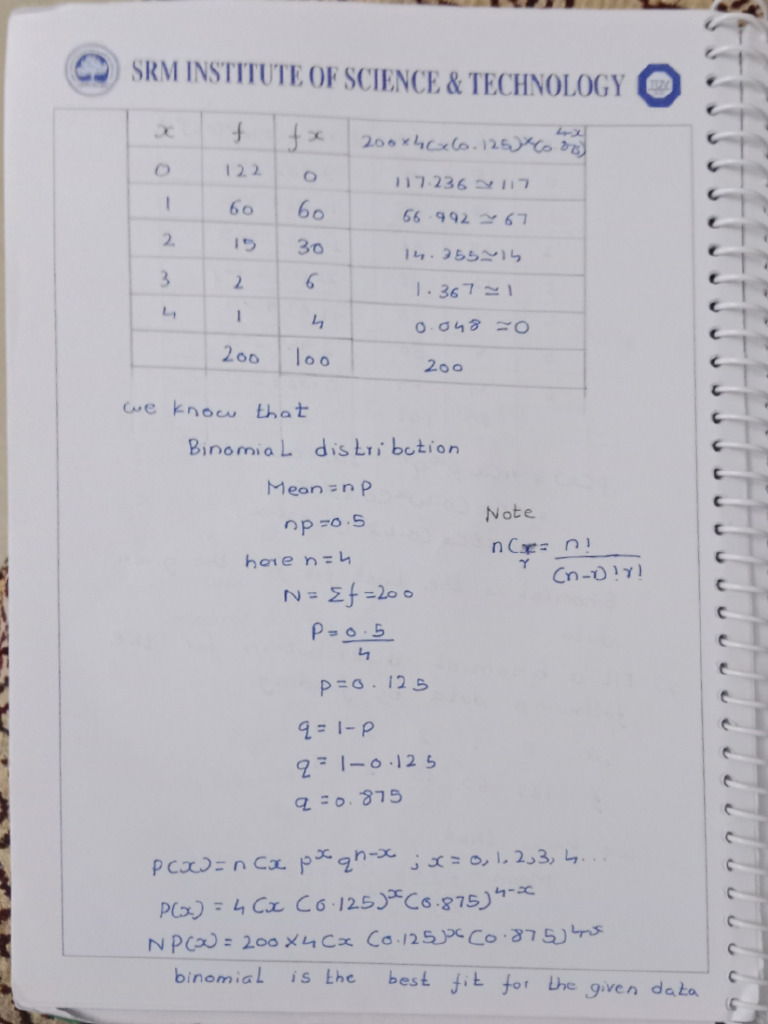 SRM INSTITUTE OF SCIENCE & TECHNOLOGY
x f fx 200×4Cx(0.125)^x(0.875)^4-x
0 122 0 117.236 ≃ 117
1 60 60 66.992 ≃ 67
2 15 30 14.355≃14
3 2 6 1.367 ≃ 1
4 1 4 0.048 ≃0
200 100 200
we know that
Binomial distribution
Mean = np
np = 0.5
Note
here n = 4
nCr = n!/(n-r)!r!
N = Σf = 200
P = 0.5/4
p = 0.125
q = 1-p
q = 1-0.125
q = 0.875
P(x) = nCx p^x q^n-x ; x = 0, 1, 2, 3, 4...
P(x) = 4Cx (0.125)^x (0.875)^4-x
NP(x) = 200 × 4Cx (0.125)^x (0.875)^4-x
binomial is the best fit for the given data